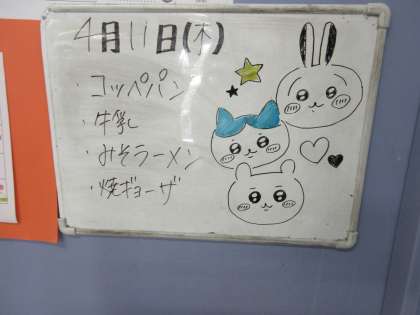 4月11日(木)
・コッペパン
・牛乳
・みそラーメン
・焼ギョーザ